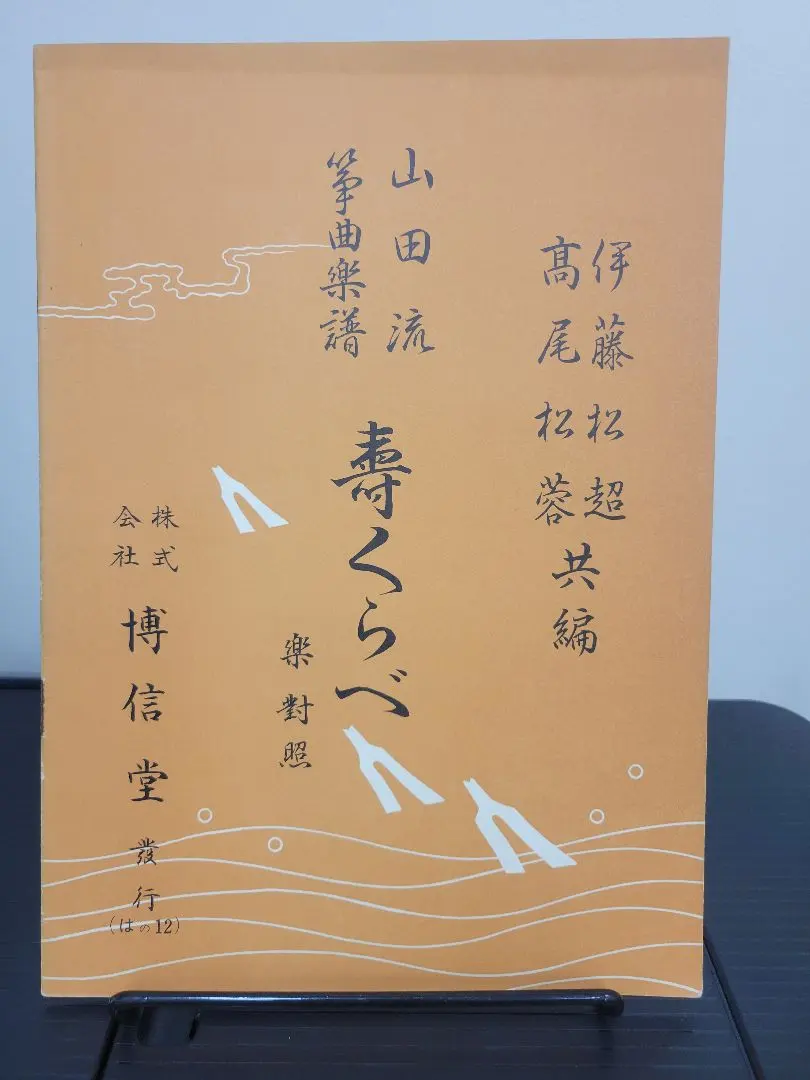 伊藤松超
髙尾松蓉
共編
山田流
箏曲樂譜
壽くらべ
樂對照
株式
会社
博信堂
發行
(はの12)